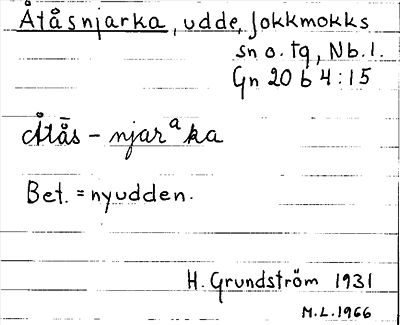 Åtåsnjarka, udde, Jokkmokks
sn o. tg, Nb.l.
Gn 20 b 4:15
Åtå̄s - njarᵃka
Bet. = nyudden.
H. Grundström 1931
M.L. 1966